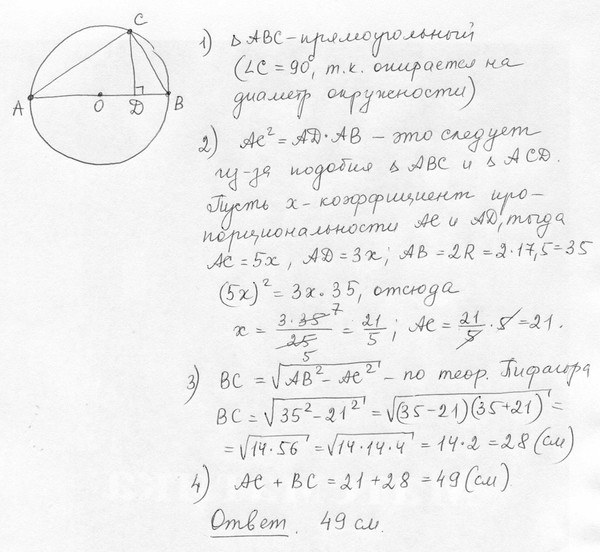 C
A O D B
1) △ABC – прямоугольный
(∠C = 90°, т.к. опирается на
диаметр окружености)
2) AC² = AD · AB – это следует
из-за подобия △ABC и △ACD.
Пусть x - коэффициент про-
порциональности AC и AD, тогда
AC = 5x, AD = 3x; AB = 2R = 2·17,5 = 35
(5x)² = 3x · 35, отсюда
x = 3·35⁷/25 5 = 21/5; AC = 21/5 · 5 = 21.
3) BC = √(AB² – AC²) - по теор. Пифагора
BC = √(35² – 21²) = √((35–21)(35+21)) =
= √(14·56) = √(14·14·4) = 14·2 = 28 (см)
4) AC + BC = 21 + 28 = 49 (см)
Ответ. 49 см.